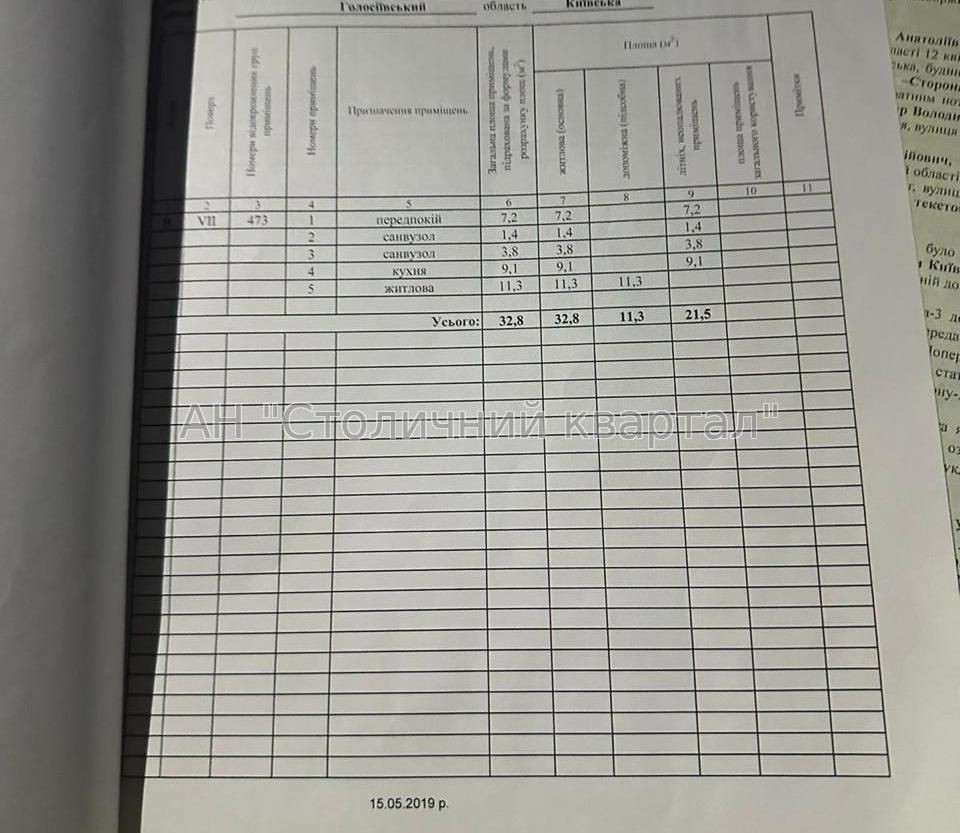 Голосіївський область Київська
Поверх
Номери відокремлених груп приміщень
Номери приміщень
Призначення приміщень
Загальна площа приміщень, підрахована за формулами розрахунку площ (м²)
Площа (м²)
житлова (основна)
допоміжна (підсобна)
літніх, неопалюваних приміщень
площа приміщень загального користування
Примітки
2 3 4 5 6 7 8 9 10 11
VII 473 1 передпокій 7,2 7,2 7,2
2 санвузол 1,4 1,4 1,4
3 санвузол 3,8 3,8 3,8
4 кухня 9,1 9,1 9,1
5 житлова 11,3 11,3 11,3
Усього: 32,8 32,8 11,3 21,5
АН "Столичний квартал"
15.05.2019 р.
Анатолій
12
–Сторон
Володи
вулиця
області
вулиц
було
Київ